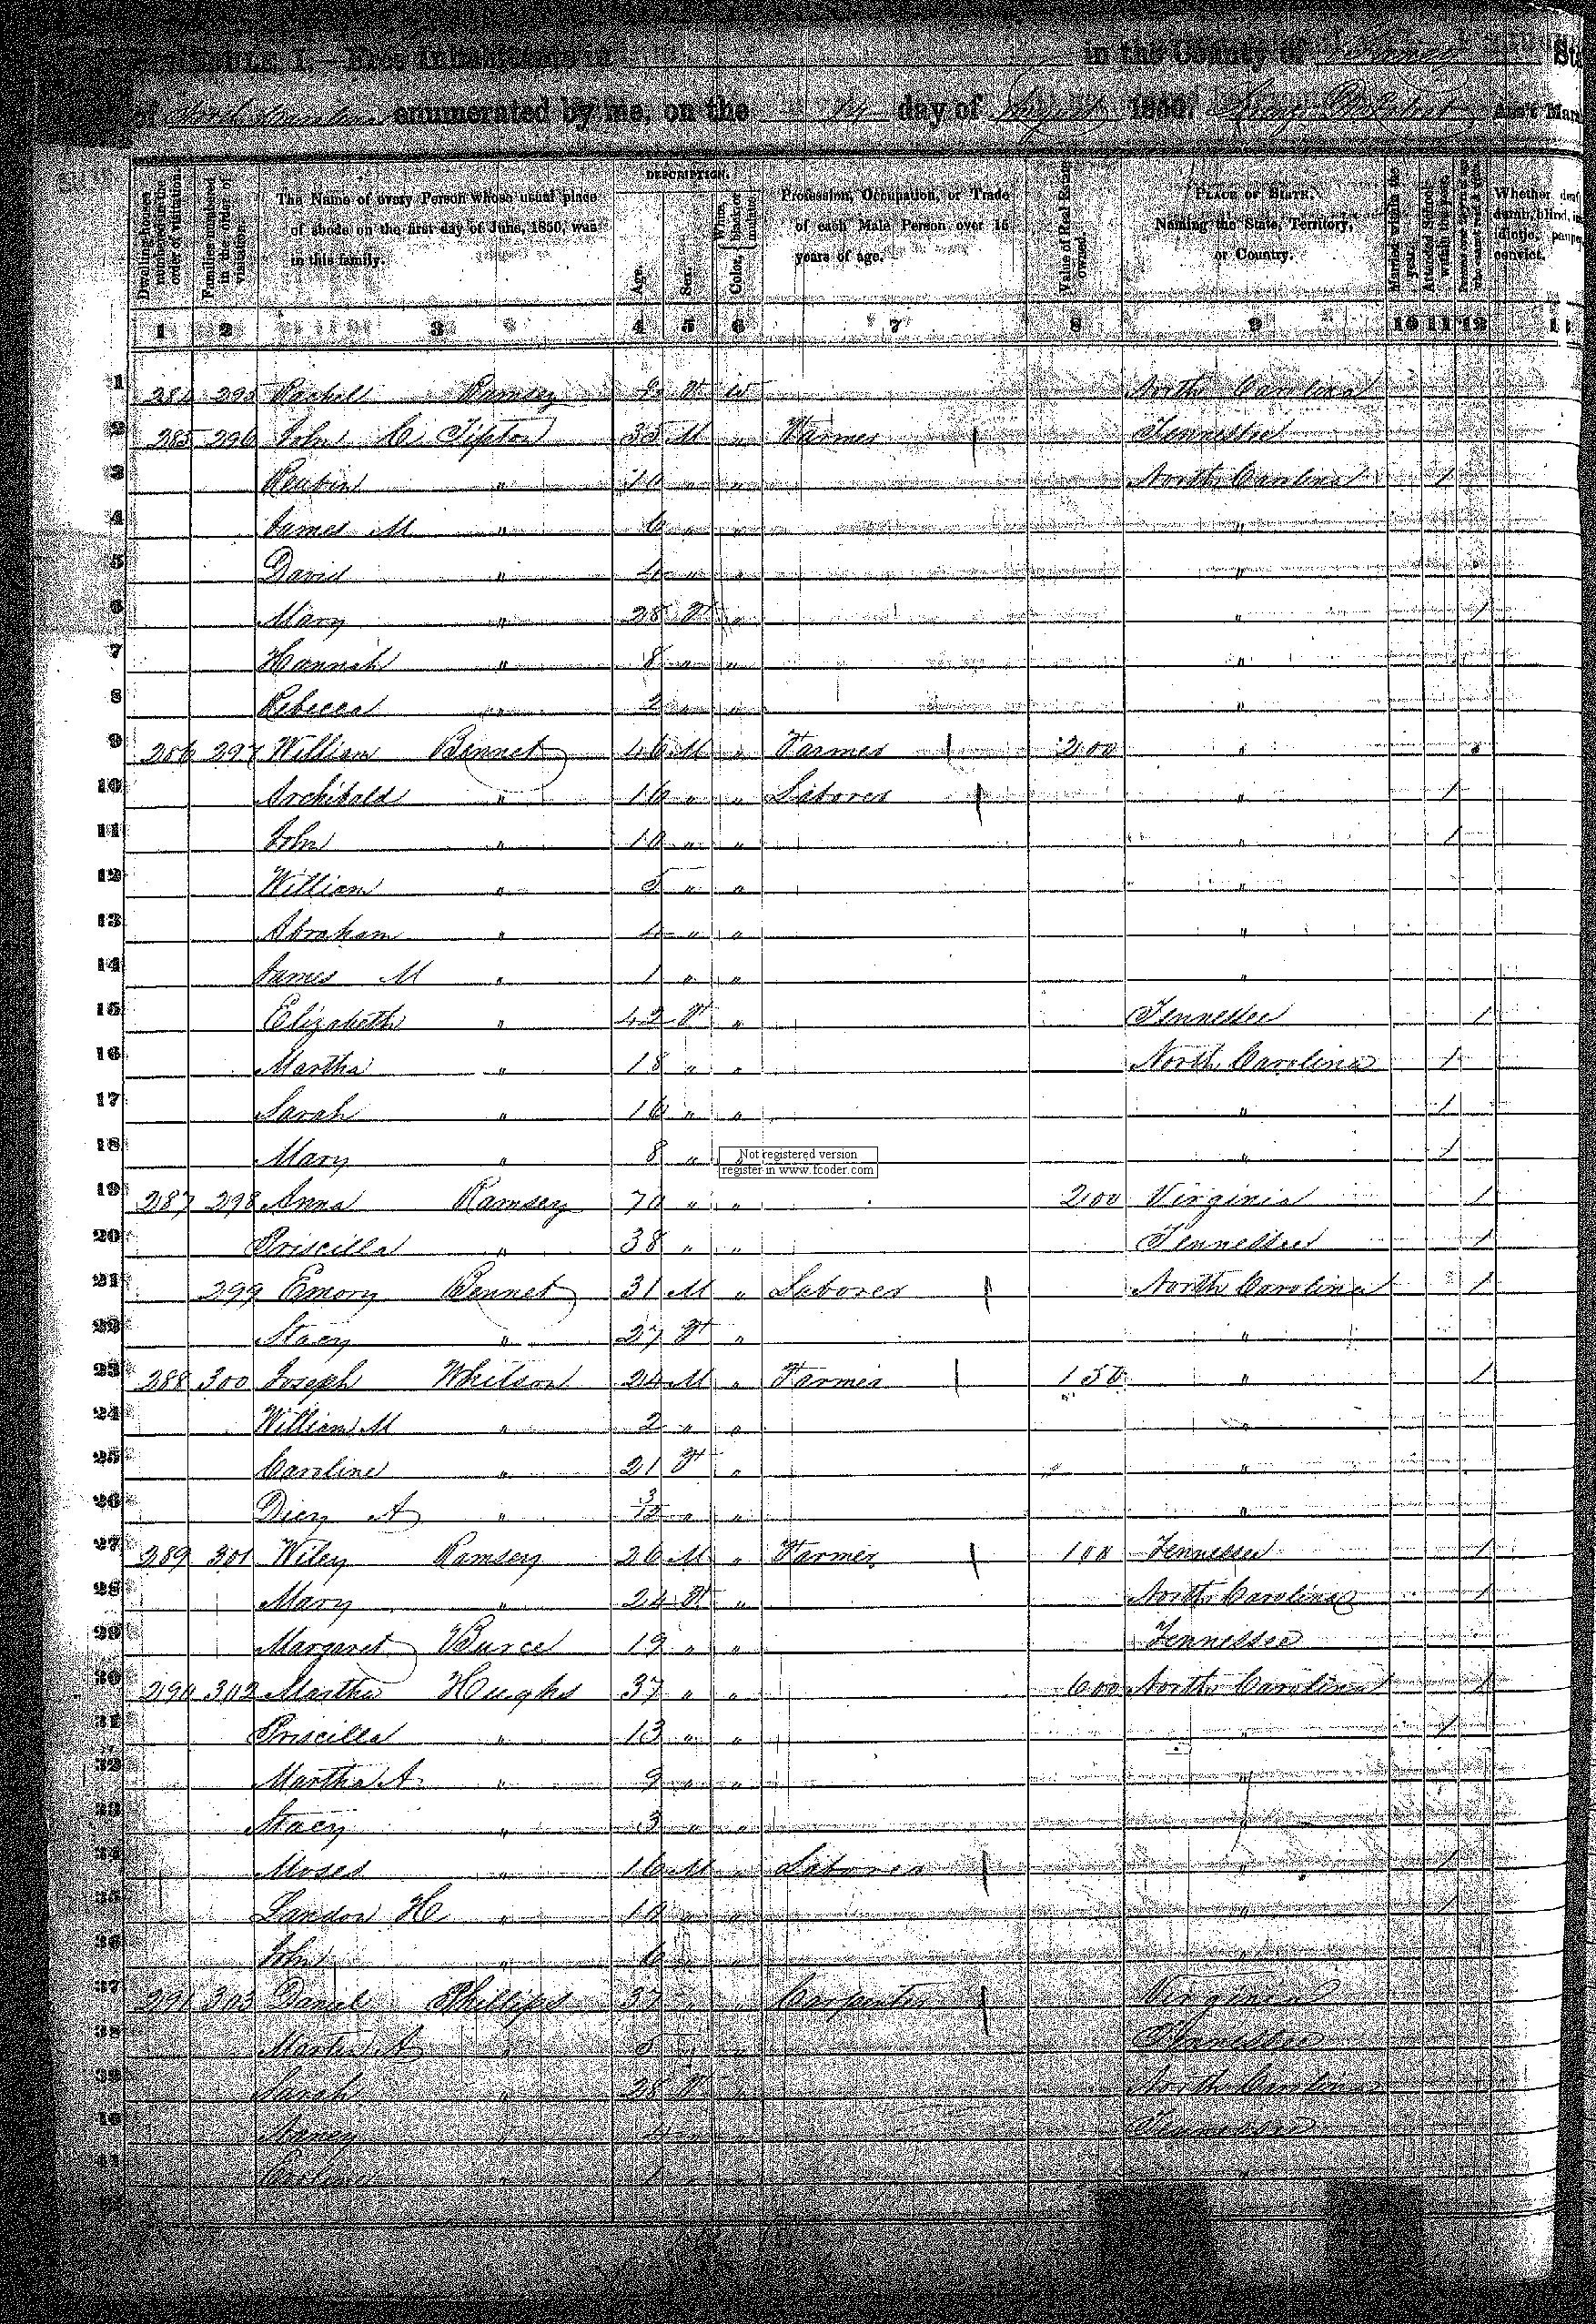 SCHEDULE I.—Free Inhabitants in in the County of
of North Carolina enumerated by me, on the 14 day of August 1850. Ass't Mar
Dwelling-houses numbered in the order of visitation.
Families numbered in the order of visitation.
The Name of every Person whose usual place of abode on the first day of June, 1850, was in this family.
DESCRIPTION.
Age.
Sex.
Color, { White, black, or mulatto.
Profession, Occupation, or Trade of each Male Person over 15 years of age.
Value of Real Estate owned.
PLACE OF BIRTH. Naming the State, Territory, or Country.
Married within the year.
Attended School within the year.
Persons over 20 y'rs of age who cannot read & write.
Whether deaf dumb, blind, in idiotic, pauper convict.
1 2 3 4 5 6 7 8 9 10 11 12
1 284 295 Rachel Ramsey F W North Carolina
2 285 296 John C Tipton 35 M " Farmer Tennessee
3 Reubin " 10 " " North Carolina 1
4 James M " 6 " " "
5 David " 4 " " "
6 Mary " 28 F " " 1
7 Hannah " 8 " " "
8 Rebecca " 2 " " "
9 286 297 William Bennet 46 M " Farmer 200 "
10 Archibald " 16 " " Laborer " 1
11 John " 10 " " " 1
12 William " 5 " " "
13 Abraham " 4 " " "
14 James M " 1 " " "
15 Elizabeth " 42 F " Tennessee 1
16 Martha " 18 " " North Carolina 1
17 Sarah " 16 " " " 1
18 Mary " 8 " " 1
Not registered version
register in www.fcoder.com
19 287 298 Anna Ramsey 70 " " 200 Virginia 1
20 Priscilla " 38 " " Tennessee 1
21 299 Emory Bennet 31 M " Laborer North Carolina 1
22 Stacy " 27 F " "
23 288 300 Joseph Whitson 24 M " Farmer 150 " 1
24 William M " 2 " " "
25 Caroline " 21 F " "
26 Dicy A " 3/12 " " "
27 289 301 Wiley Ramsey 26 M " Farmer 100 Tennessee 1
28 Mary " 24 F " North Carolina 1
29 Margaret 19 " " Tennessee
30 290 302 Martha Hughs 37 " " 600 North Carolina 1
31 Priscilla " 13 " " " 1
32 Martha A " 9 " " "
33 Stacy " 3 " " "
34 Moses 16 M " Laborer " 1
35 Landon H " 10 " " " 1
36 John " 6 " "
37 291 303 Daniel Phillips 37 " " Carpenter Virginia
38 " 5 Tennessee
39 Sarah " 28 F " North Carolina
40 Nancy " 4 Tennessee
41 " 1 "